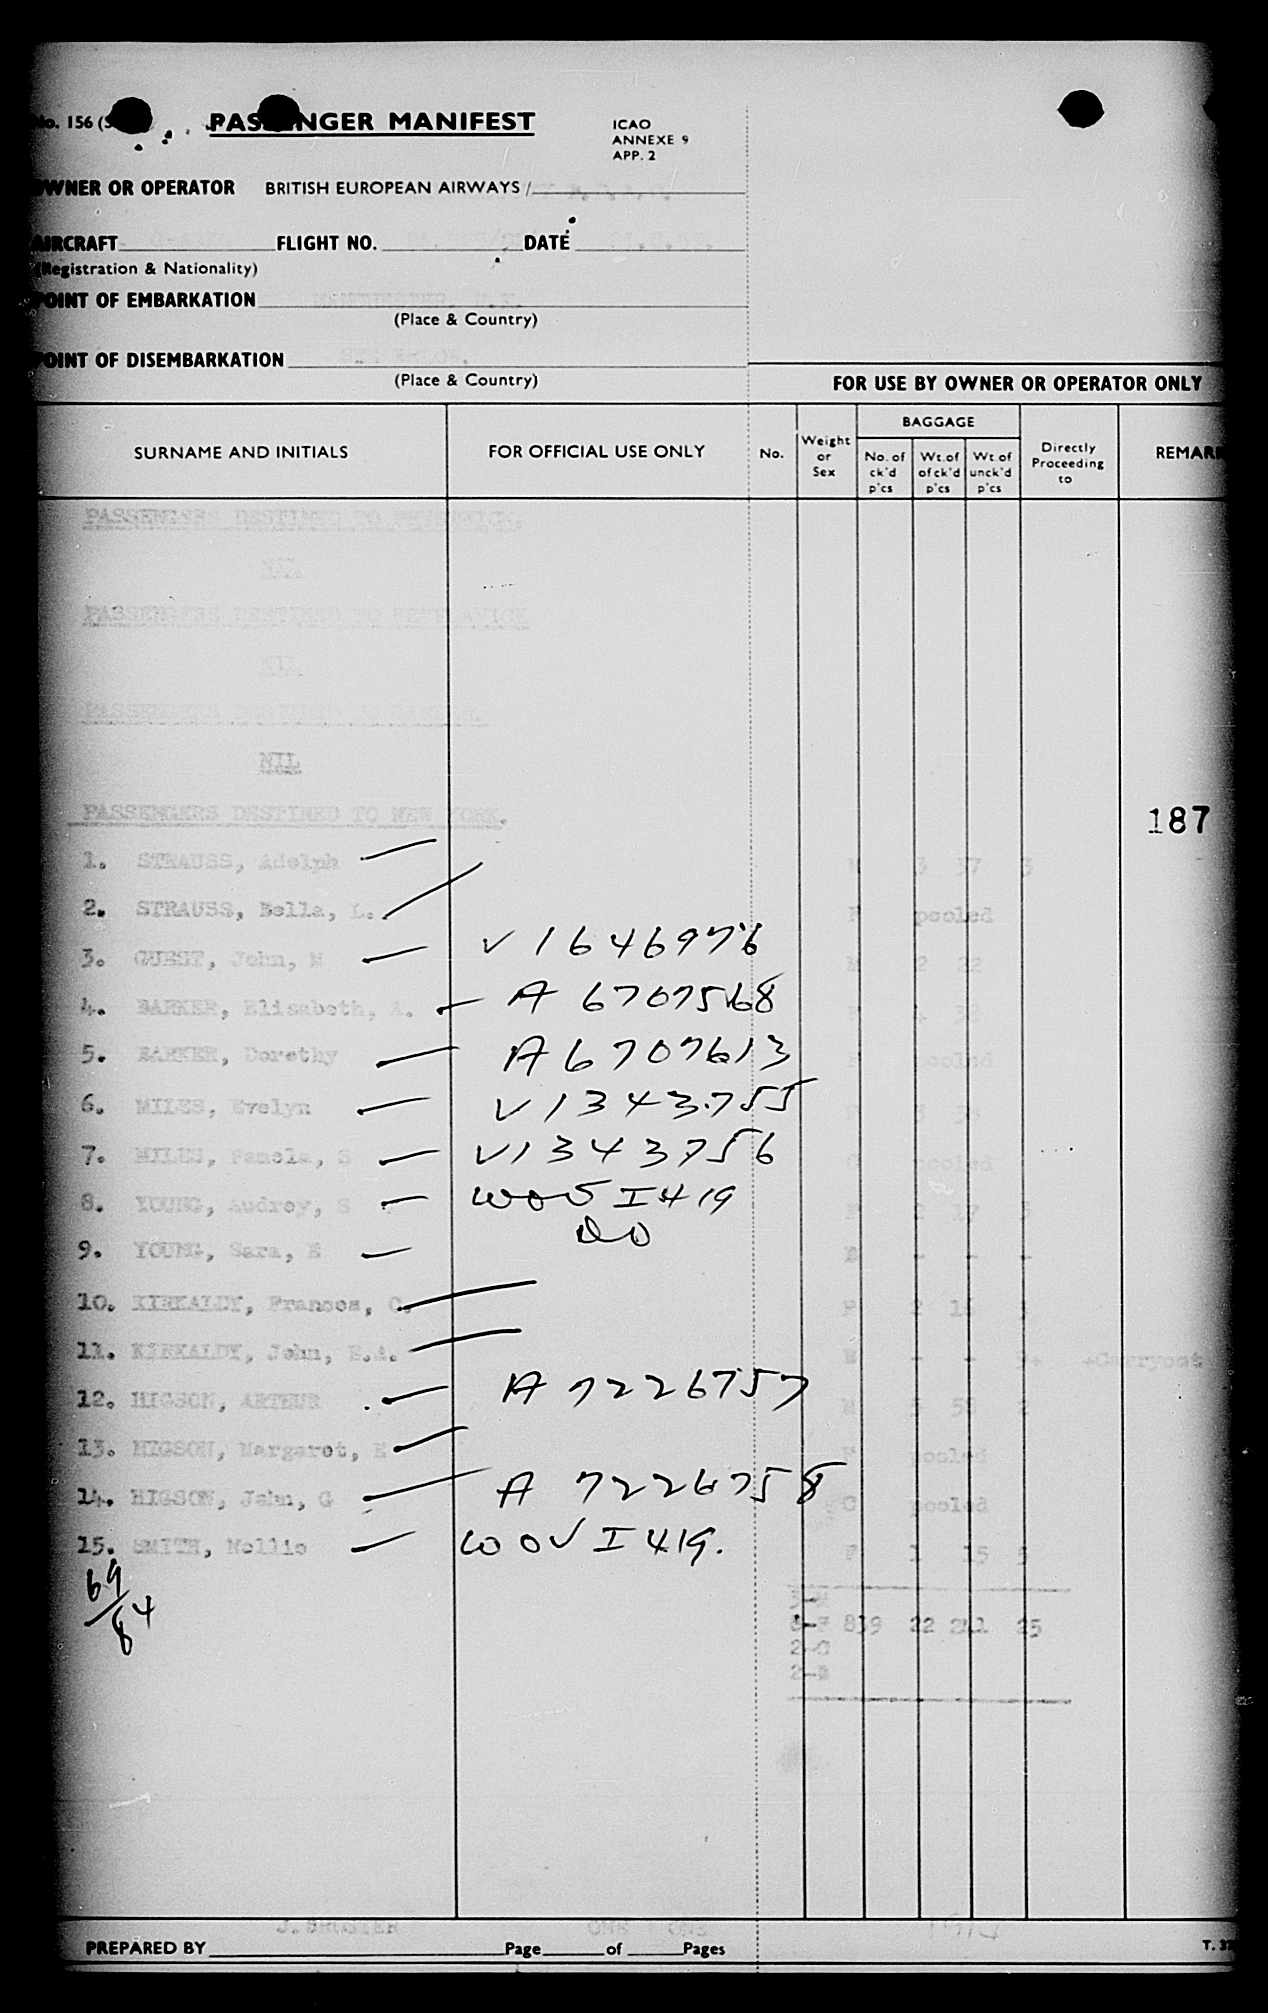 No. 156 (S
PASSENGER MANIFEST
ICAO
ANNEXE 9
APP. 2
OWNER OR OPERATOR BRITISH EUROPEAN AIRWAYS /
AIRCRAFT FLIGHT NO. DATE
(Registration & Nationality)
POINT OF EMBARKATION MANCHESTER, U.K.
(Place & Country)
POINT OF DISEMBARKATION
(Place & Country)
FOR USE BY OWNER OR OPERATOR ONLY
SURNAME AND INITIALS FOR OFFICIAL USE ONLY No. Weight or Sex BAGGAGE No. of ck'd p'cs Wt. of of ck'd p'cs Wt of unck'd p'cs Directly Proceeding to REMARK
PASSENGERS DESTINED TO
NIL
PASSENGERS DESTINED TO
NIL
PASSENGERS DESTINED TO
NIL
PASSENGERS DESTINED TO NEW YORK.
187
1. STRAUSS, Adolph M 3 37 3
2. STRAUSS, Bella, L. F pooled
3. GUEST, John, M V1646976 M 2 22
4. BARKER, Elisabeth, A. A6707568 F 4 38
5. BARKER, Dorothy A6707613 F pooled
6. MILES, Evelyn V1343755
7. MILES, Pamela, S V1343756 C pooled
8. YOUNG, Audrey, S WOV I419 F 2 17 3
9. YOUNG, Sara, E DO - - -
10. KIRKALDY, Frances, C. F 2
11. KIRKALDY, John, E.A. - - +Carrycot
12. HIGSON, ARTHUR A 7226757 M 5 58 2
13. HIGSON, Margaret, E F pooled
14. HIGSON, John, G A 7226758 C pooled
15. SMITH, Nellie WOV I419. F 1 15 5
69/84
3-M
8-F 839 22 25
2-C
2-B
PREPARED BY Page ONE of ONE Pages